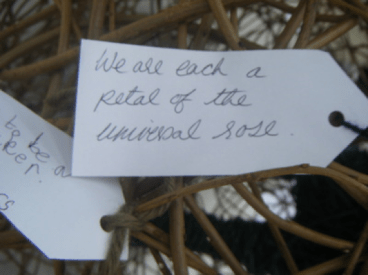 We are each a
petal of the
universal rose.
to be a